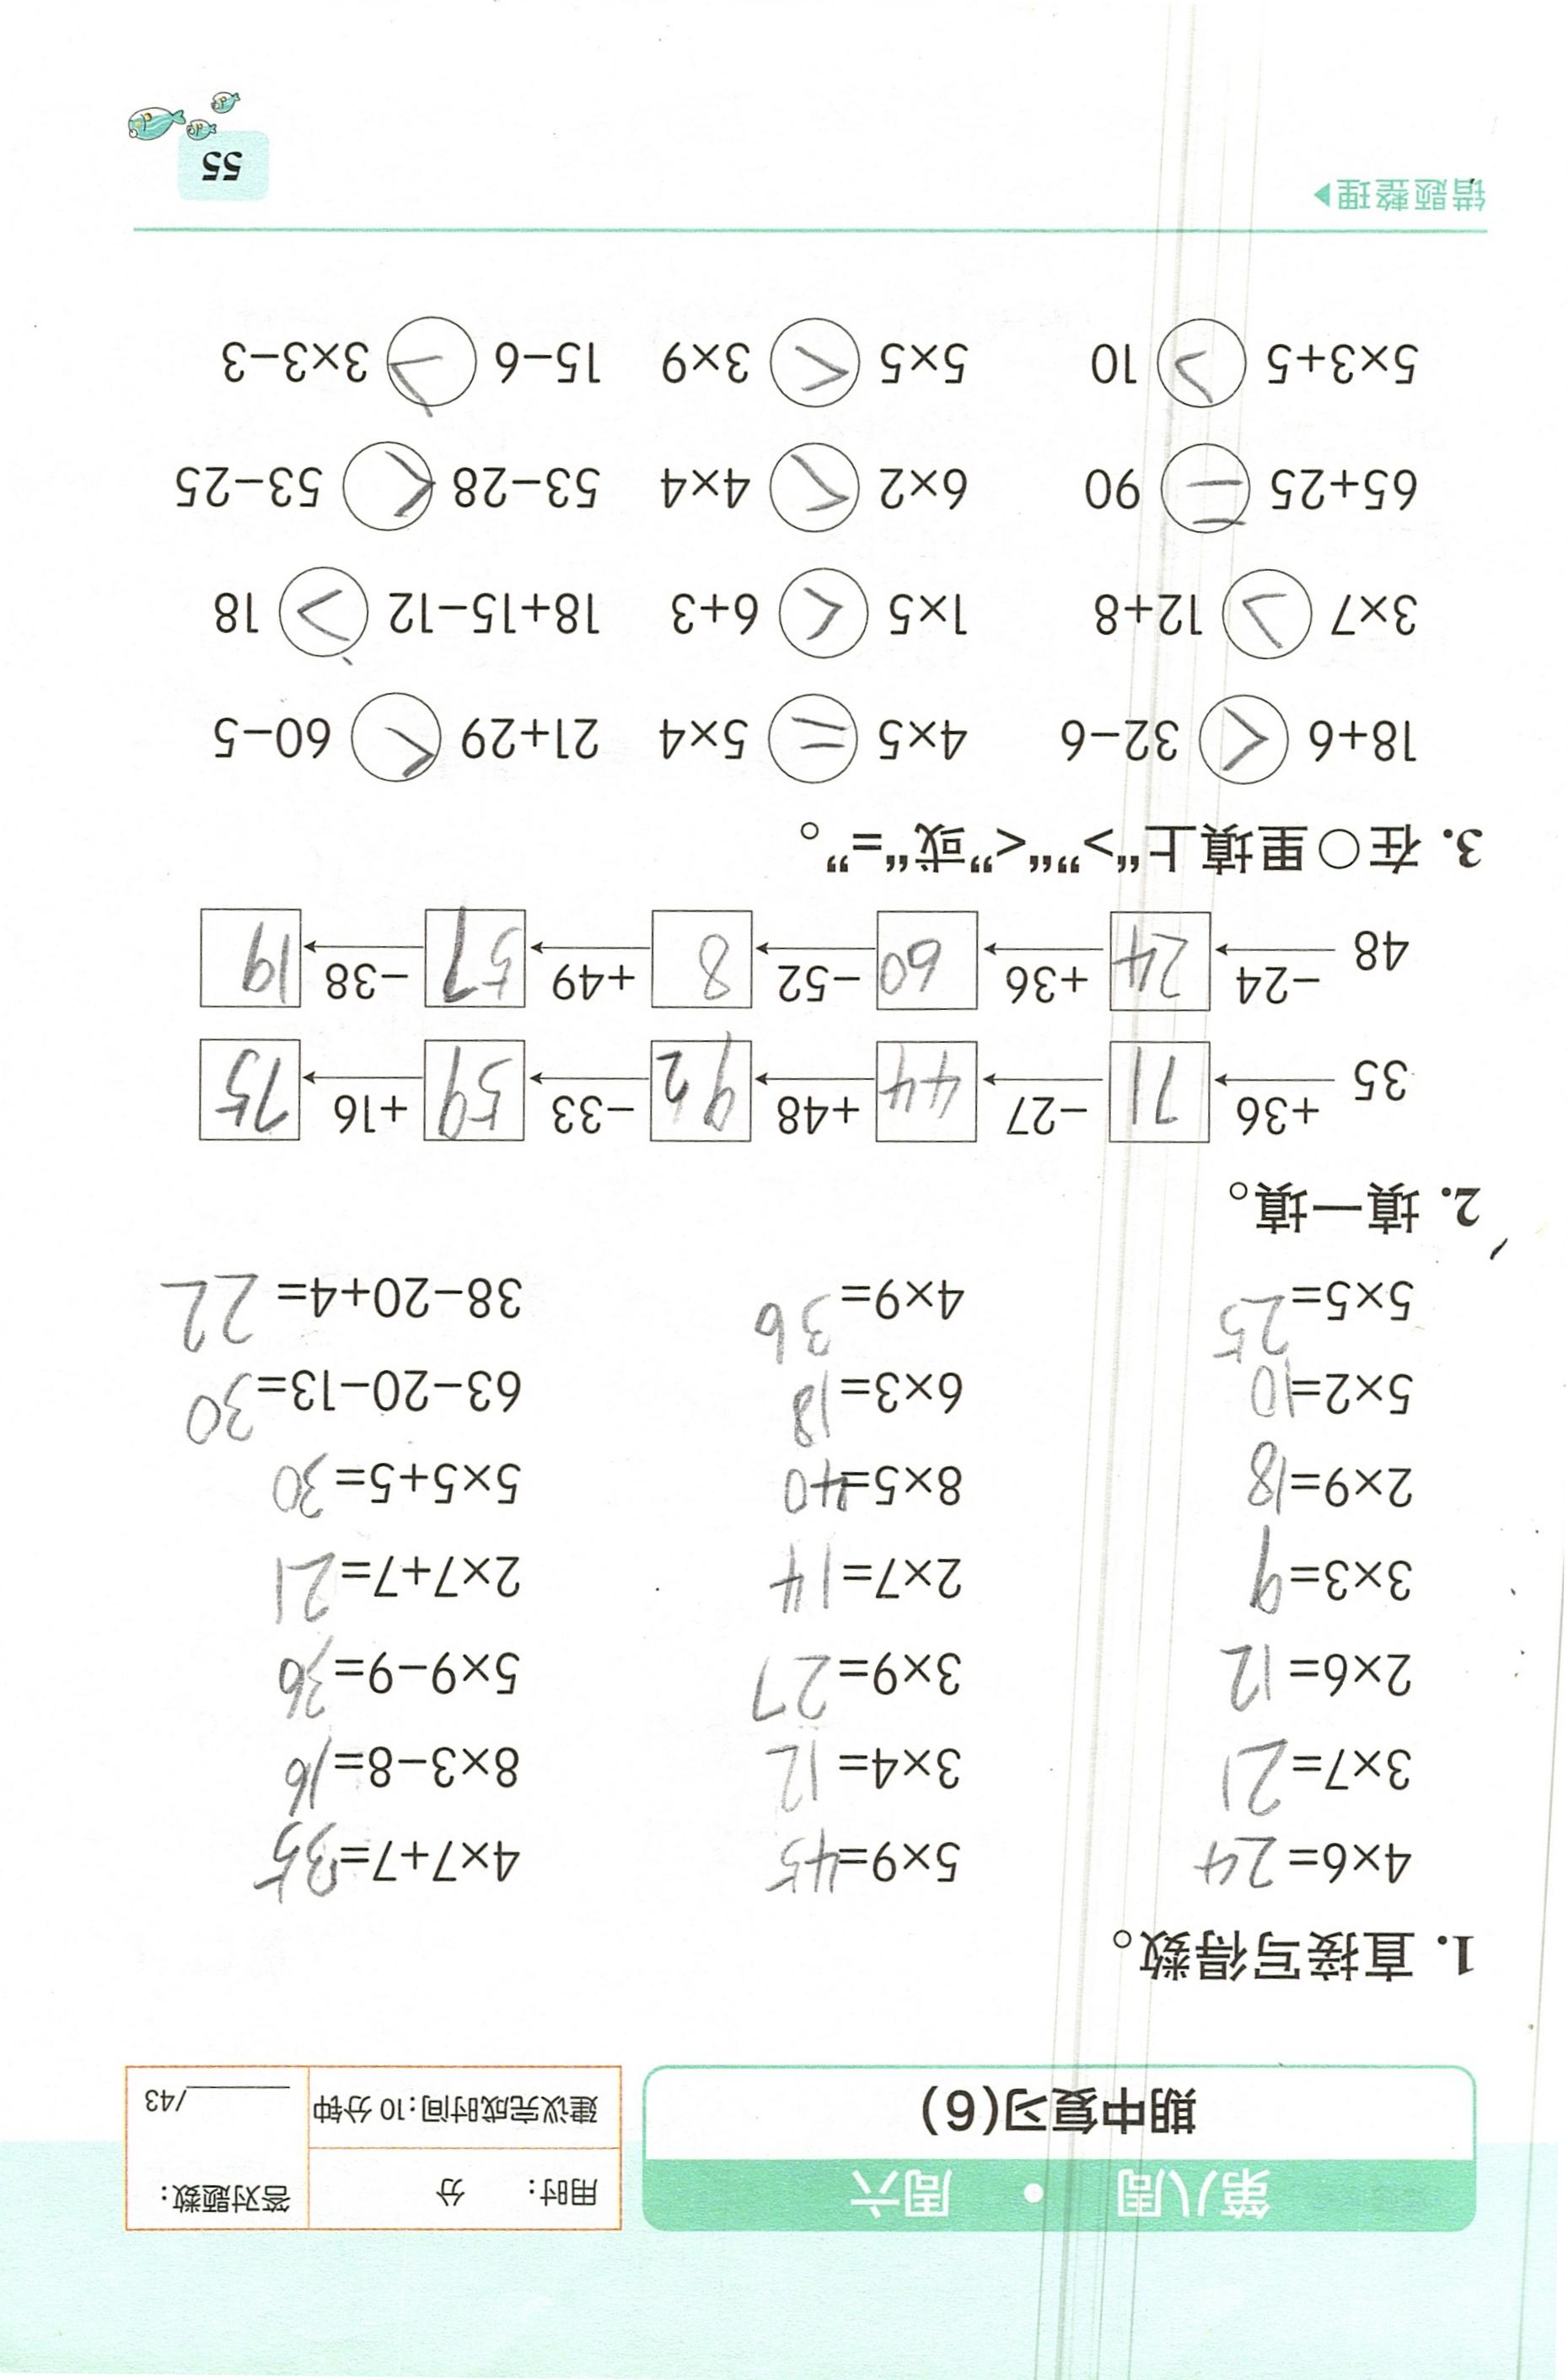 第八周 • 周六
期中复习(6)
用时： 分
建议完成时间:10分钟
答对题数：
____/43
1. 直接写得数。
4×6=24 5×9=45 4×7+7=35
3×7=21 3×4=12 8×3-8=16
2×6=12 3×9=27 5×9-9=36
3×3=9 2×7=14 2×7+7=21
2×9=18 8×5=40 5×5+5=30
5×2=10 6×3=18 63-20-13=30
5×5=25 4×9=36 38-20+4=22
2. 填一填。
35 +36→ 71 -27→ 44 +48→ 92 -33→ 59 +16→ 75
48 -24→ 24 +36→ 60 -52→ 8 +49→ 57 -38→ 19
3. 在○里填上“>”“<”或“=”。
18+6 < 32-6 4×5 = 5×4 21+29 < 60-5
3×7 > 12+8 1×5 < 6+3 18+15-12 > 18
65+25 = 90 6×2 < 4×4 53-28 < 53-25
5×3+5 > 10 5×5 < 3×9 15-6 > 3×3-3
错题整理▶
55